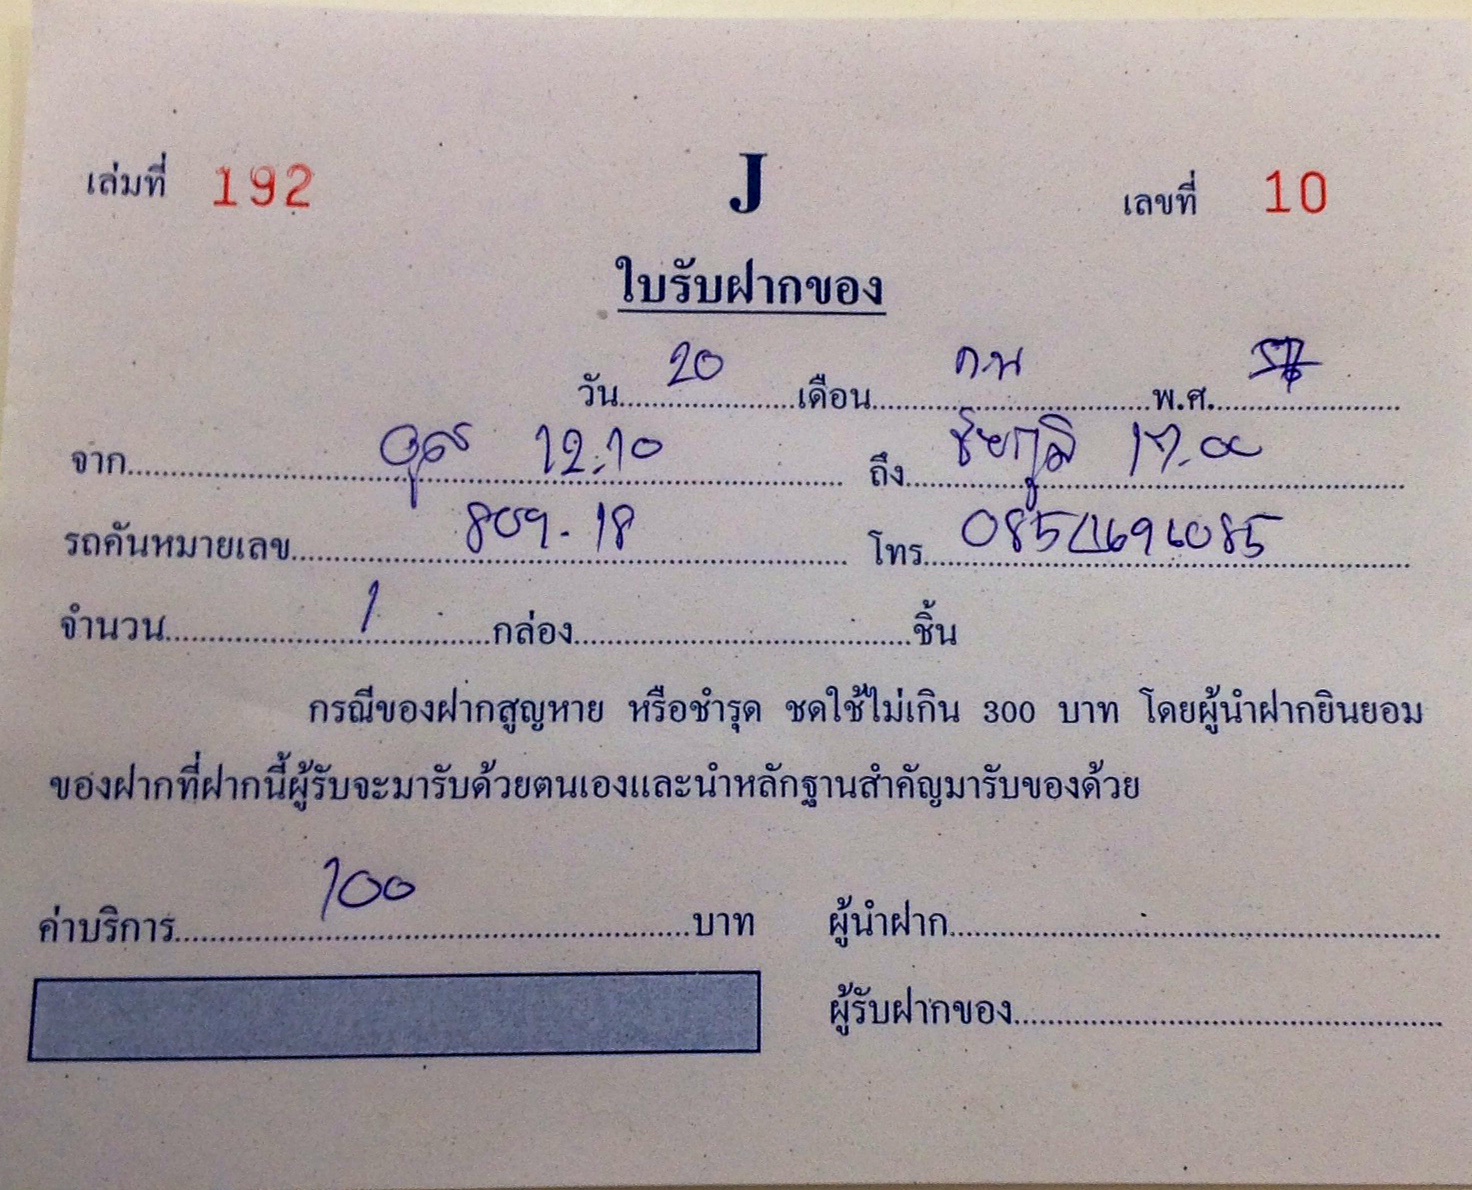 เล่มที่ 192 J เลขที่ 10
ใบรับฝากของ
วัน 20 เดือน ก.พ พ.ศ. 57
จาก 12.10 ถึง ชัยภูมิ 17.00
รถคันหมายเลข 809-18 โทร
จำนวน 1 กล่อง ชิ้น
กรณีของฝากสูญหาย หรือชำรุด ชดใช้ไม่เกิน 300 บาท โดยผู้นำฝากยินยอม
ของฝากที่ฝากนี้ผู้รับจะมารับด้วยตนเองและนำหลักฐานสำคัญมารับของด้วย
ค่าบริการ 100 บาท ผู้นำฝาก
ผู้รับฝากของ